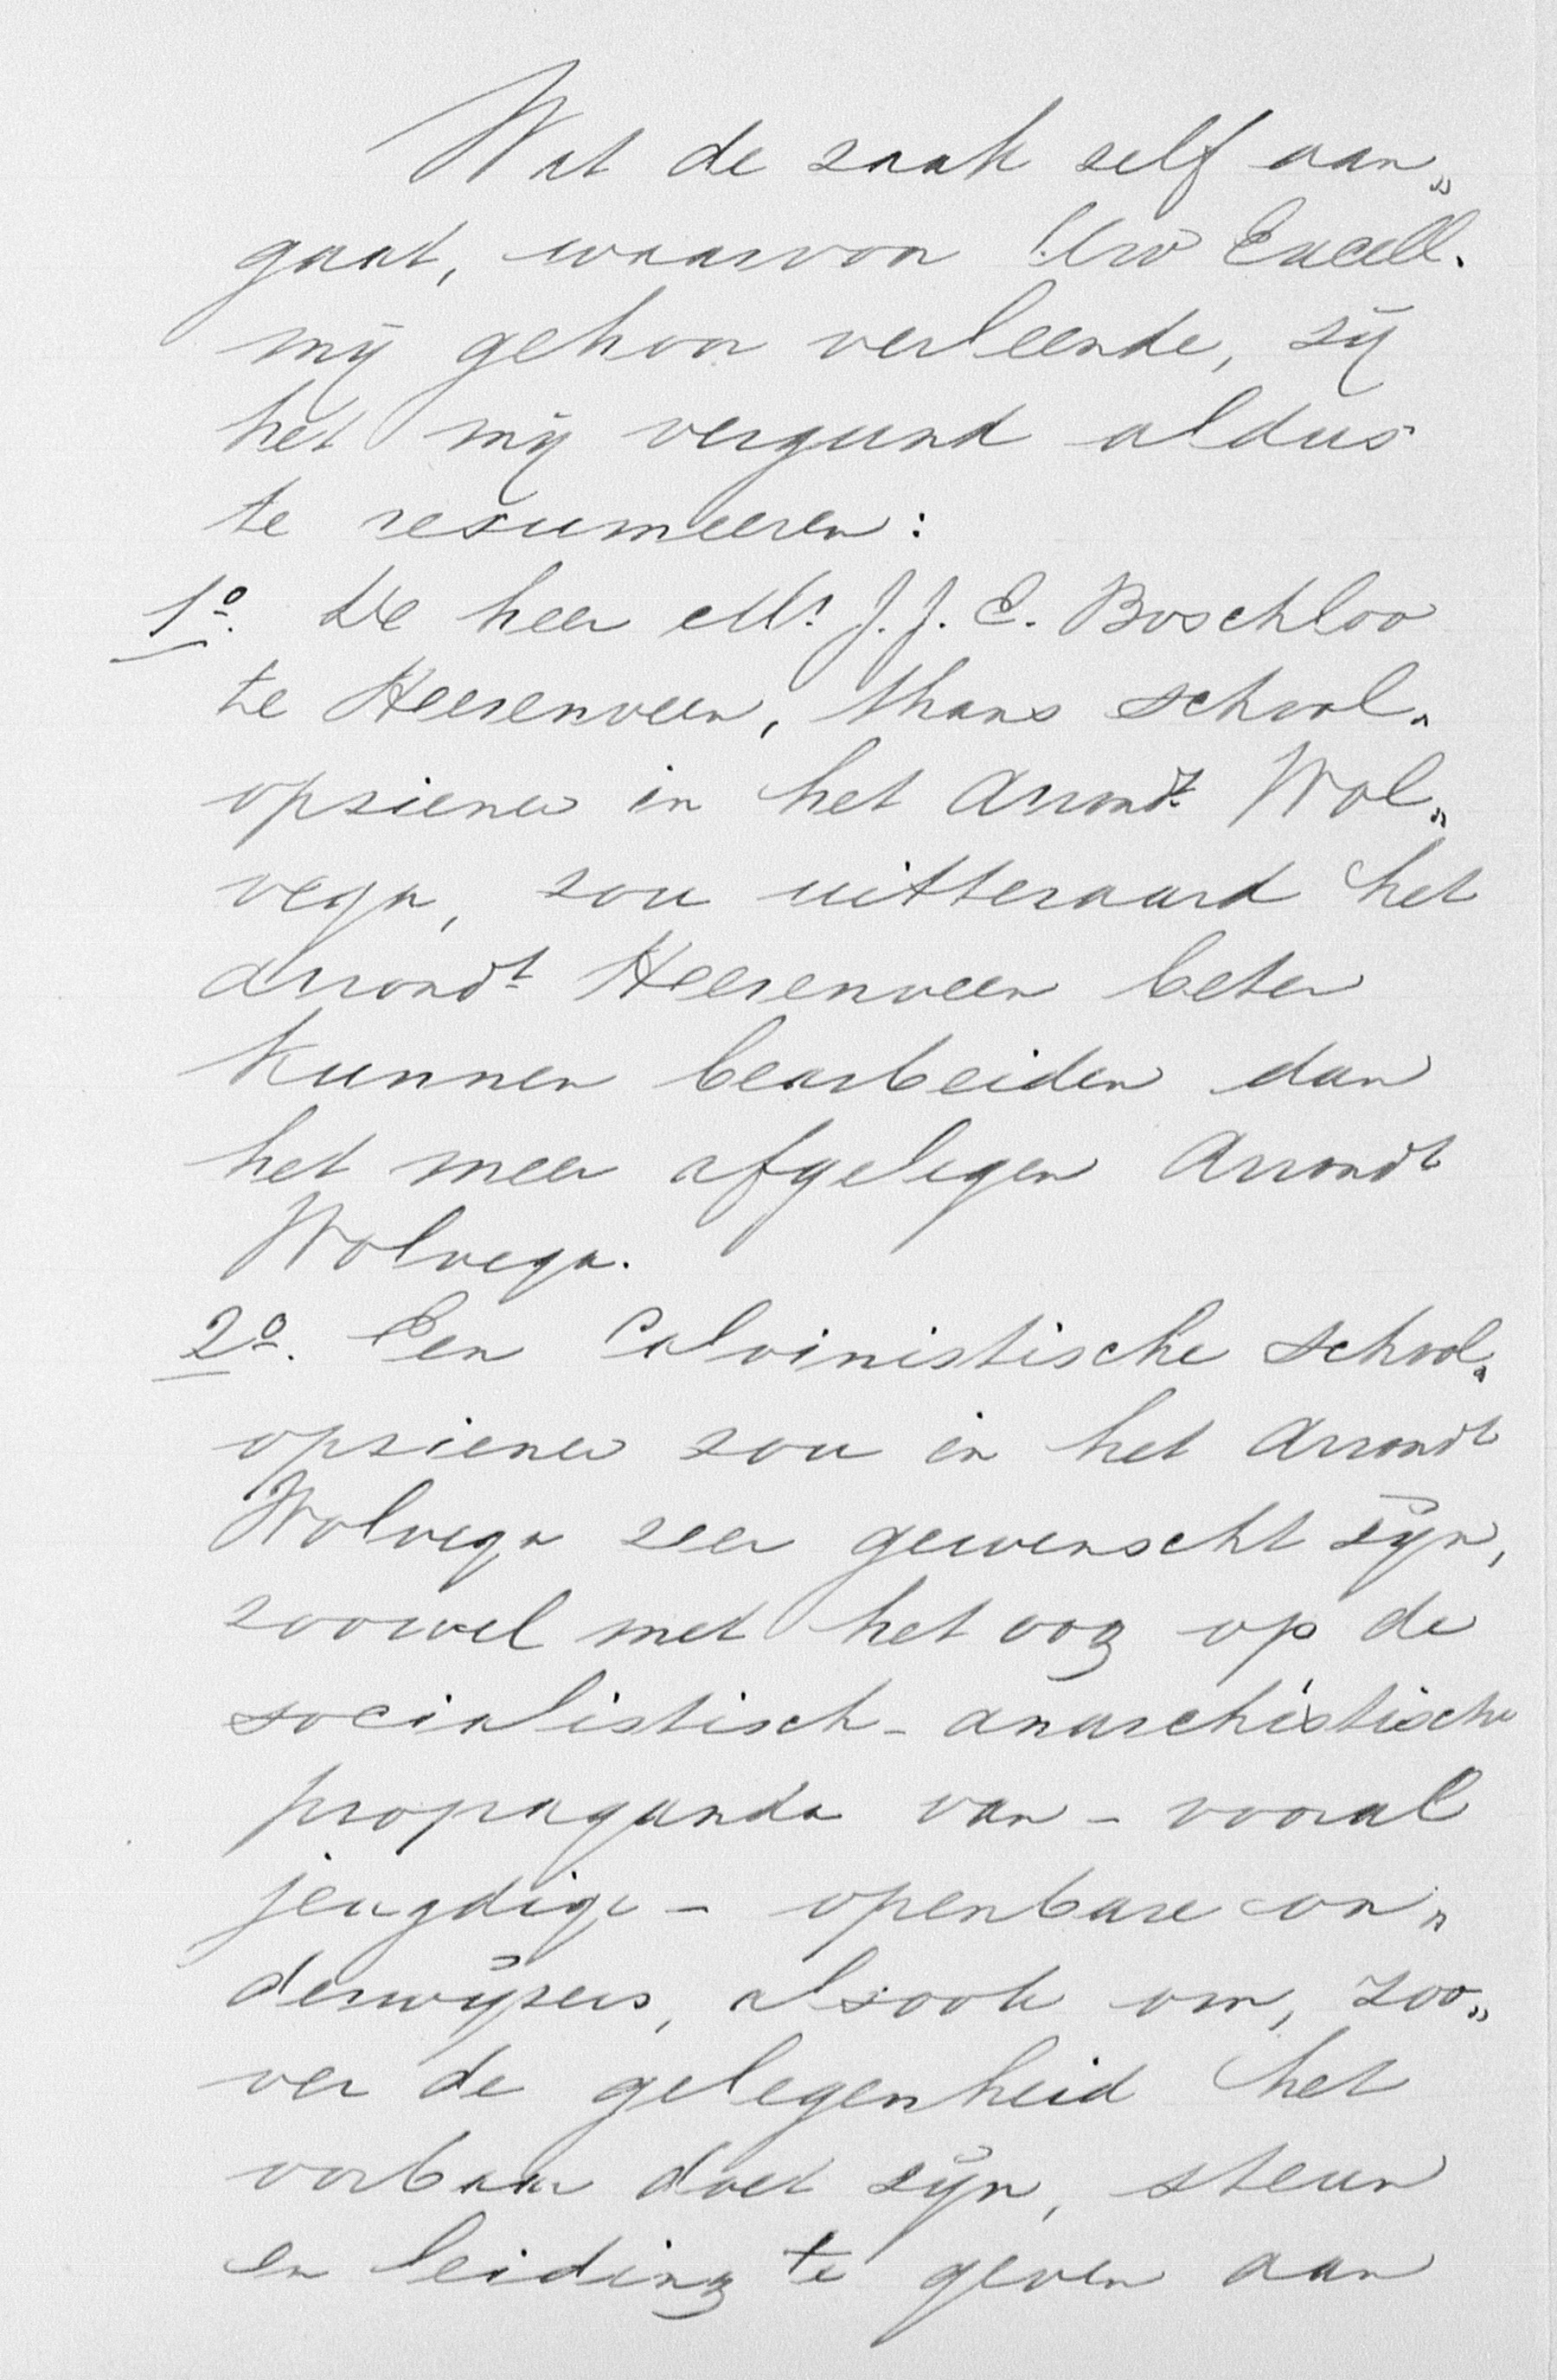 Wat de zaak zelf aan„
gaat, waarvoor Uw Excell.
mij gehoor verleende, zij
het mij vergund aldus
te resumeeren:
1º. De heer Mr J. J. C. Boschloo
te Heerenveen, thans school„
opziener in het Arrondt Wol„
vega, zou uitteraard het
Arrondt Heerenveen beter
kunnen bearbeiden dan
het meer afgelegen Arrondt
Wolvega.
2º. Een Calvinistische school„
opziener zou in het Arrondt
Wolvega zeer gewenscht zijn,
zoowel met het oog op de
socialistisch-anarchistische
propaganda van - vooral
jeugdige - openbare on„
derwijzers, alsook om, zoo„
ver de gelegenheid het
oorbaar doet zijn, steun
en leiding te geven aan